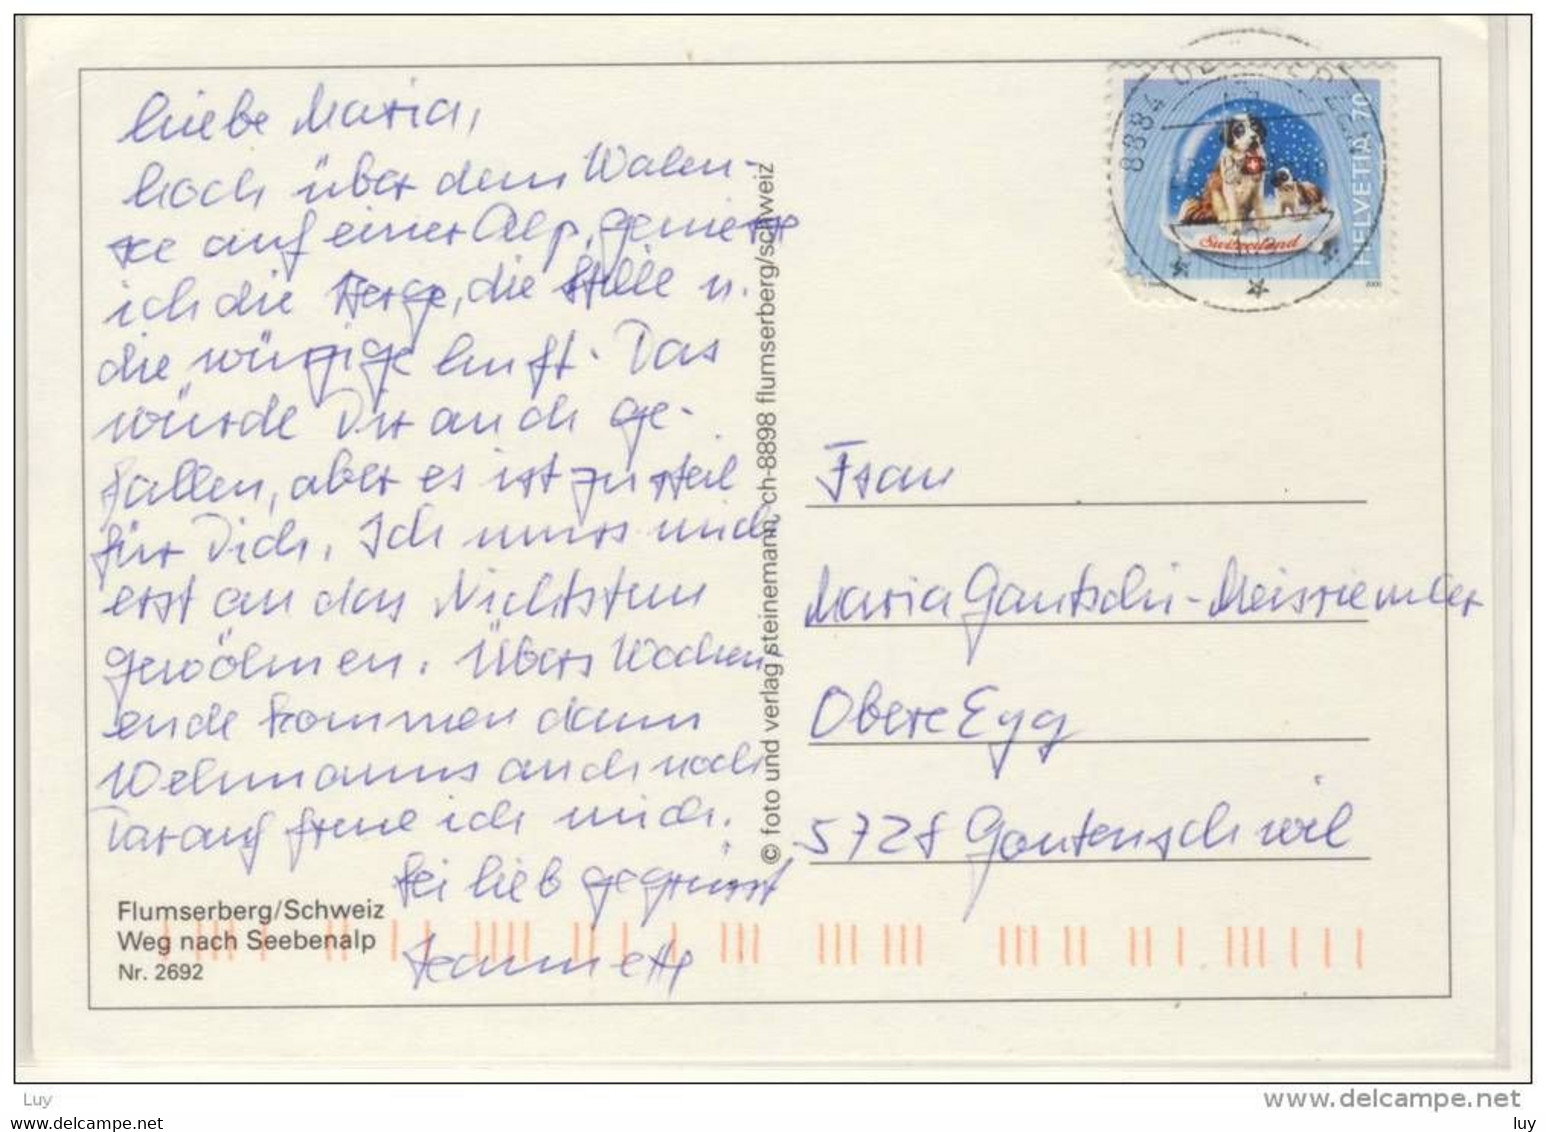 Liebe Maria,
hoch über dem Walen-
see auf einer Alp, geniesse
ich die Berge, die Stille u.
die würzige Luft. Das
würde Dir auch ge-
fallen, aber es ist zu steil
für Dich. Ich muss mich
erst an das Nichtstun
gewöhnen. Übers Wochen,
ende kommen dann
auch noch
Darauf freue ich mich.
Sei lieb gegrüsst
Jeannette
Flumserberg/Schweiz
Weg nach Seebenalp
Nr. 2692
© foto und verlag steinemann, ch-8898 flumserberg/schweiz
8884 OBERTERZEN
HELVETIA 70
Switzerland
2000
Frau
Maria Gautschi-
Obere Egg
5728 Gontenschwil
Luy
www.delcampe.net
luy